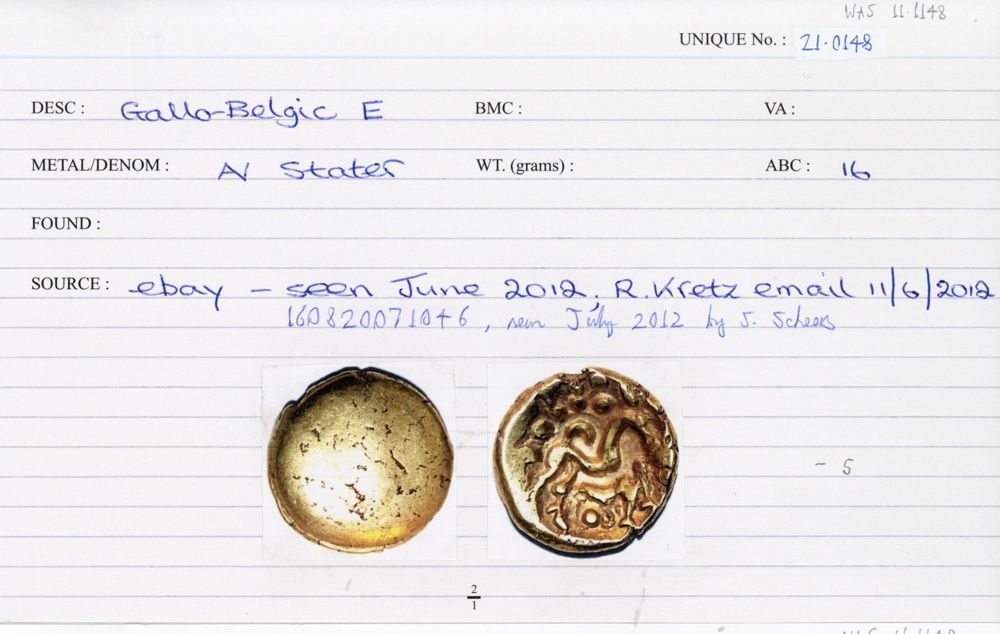 WAS 11.1148
UNIQUE No. : 21.0148
DESC : Gallo-Belgic E BMC : VA :
METAL/DENOM : AV Stater WT. (grams) : ABC : 16
FOUND :
SOURCE : ebay – seen June 2012, R. Kretz email 11/6/2012
160820071046, seen July 2012 by S. Scheers
- 5
2
1